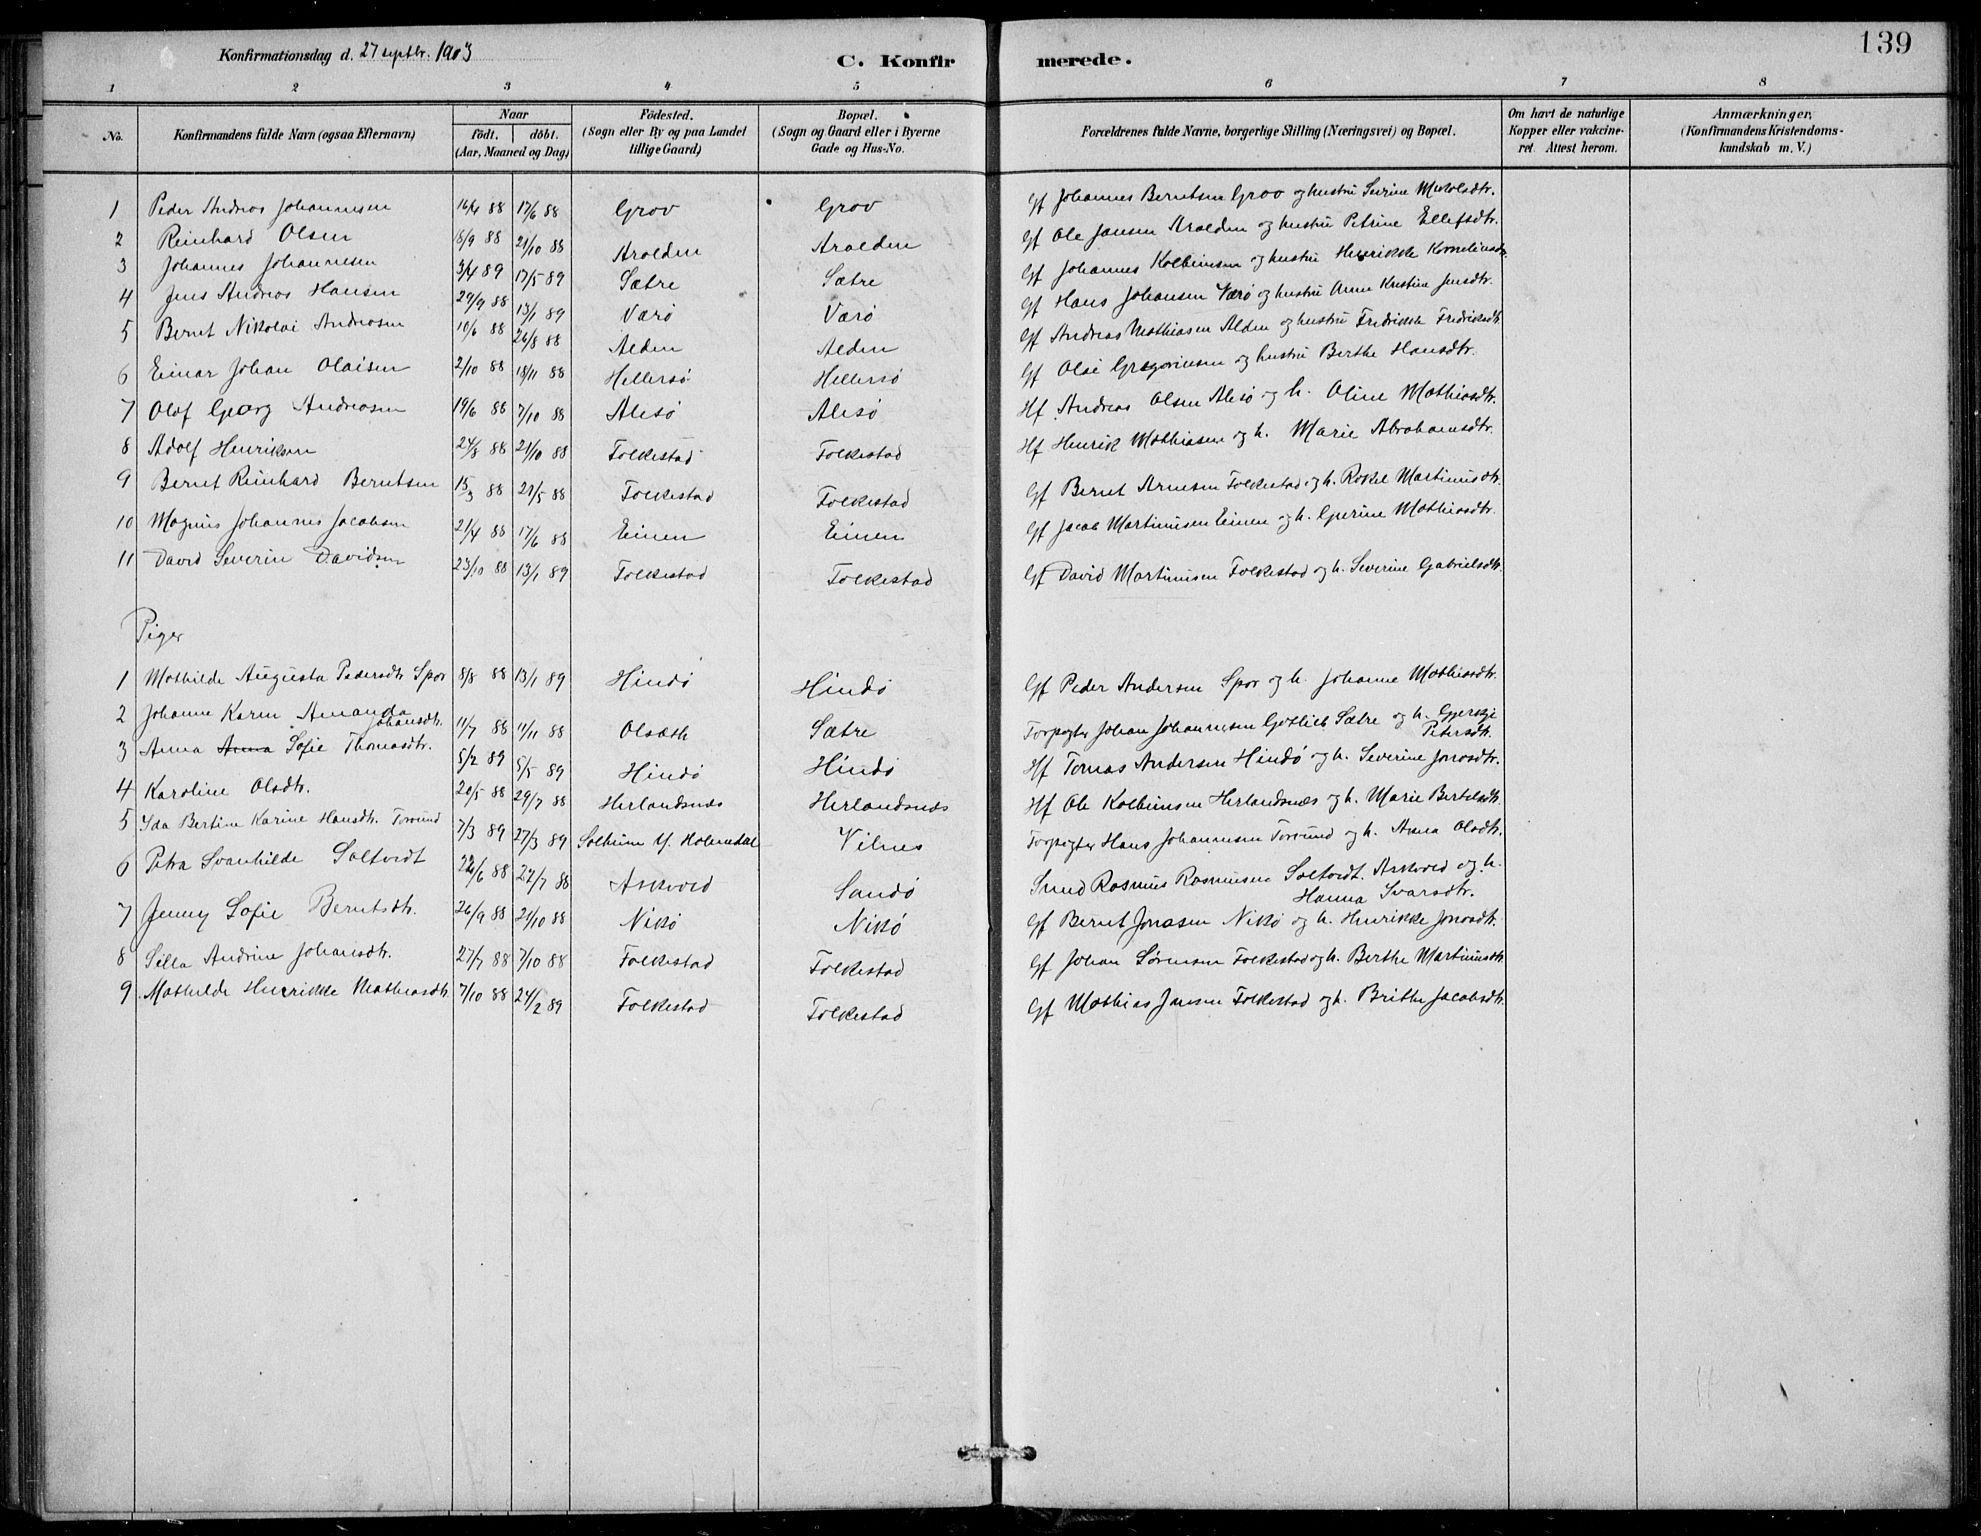 Konfirmationsdag d. 27 septbr. 1903
C. Konfirmerede.
139
1 2 3 4 5 6 7 8
No.
Konfirmandens fulde Navn (ogsaa Efternavn)
Naar
födt. döbt.
(Aar, Maaned og Dag)
Födested.
(Sogn eller By og paa Landet
tillige Gaard)
Bopæl.
(Sogn og Gaard eller i Byerne
Gade og Hus-No.
Forældrenes fulde Navne, borgerlige Stilling (Næringsvei) og Bopæl.
Om havt de naturlige
Kopper eller vakcine-
ret. Attest herom.
Anmærkninger,
(Konfirmandens Kristendoms-
kundskab m. V.)
1 Peder Andreas Johannesen 16/4 88 17/6 88 Grov Grov Gf Johannes Berntsen Grov og hustru Serine
2 Reinhard Olsen 18/9 88 21/10 88 Aralden Aralden Gf Ole Jansen Aralden og hustru Petrine Ellefsdtr.
3 Johannes Johannesen 3/4 89 17/5 89 Sætre Sætre Gf Johannes Kolbeinsen og hustru Henrikke Korneliusdtr
4 Jens Andreas Hansen 29/9 88 13/1 89 Værø Værø Gf Hans Johansen Værø og hustru Anne Kristine Jensdtr.
5 Bernt Nikolai Andreasen 10/6 88 26/8 88 Alden Alden Gf Andreas Mathiasen Alden og hustru Fredrikke Fredriksdtr
6 Einar Johan Olaisen 2/10 88 18/11 88 Hellersø Hellersø Gf Olai Gregoriusen og hustru Berthe Hansdtr.
7 Olaf Georg Andreasen 19/6 88 7/10 88 Alesø Alesø Hf. Andreas Olsen Alesø og h. Oline Mathiasdtr.
8 Adolf Henriksen 24/8 88 21/10 88 Folkestad Folkestad Hf Henrik Mathiasen og h. Marie Abrahamsdtr.
9 Bernt Reinhard Berntsen 15/3 88 21/5 88 Folkestad Folkestad Gf Bernt Arnesen Folkestad og h. Rakel Martinusdtr.
10 Magnus Johannes Jacobsen 21/4 88 17/6 88 Einen Einen Gf Jacob Martinusen Einen og h. Gjerine Mathiasdtr.
11 David Severin Davidsen 23/10 88 13/1 89 Folkestad Folkestad Gf David Martinusen Folkestad og h. Severine Gabrielsdtr.
Piger
1 Mathilde Augusta Pedersdtr Spor 8/8 88 13/1 89 Hindø Hindø Gf Peder Andersen Spor og h. Johanne Mathiasdtr.
2 Johanne Karen Amanda Johansdtr. 11/7 88 11/11 88 Olsæth Sætre Forpagter Johan Johannesen Gotlieb Sætre og h. Gjerskje
Petersdtr.
3 Anna Anna Sofie Thomasdtr. 5/2 89 5/5 89 Hindø Hindø Hf Tomas Andersen Hindø og h. Severine Jonasdtr.
4 Karoline Olsdtr. 20/5 88 29/7 88 Herlandsnes Herlandsnes Hf Ole Kolbeinsen Herlandsnæs og h. Marie Bertelsdtr
5 Ida Bertine Karine Hansdtr. Torsund 7/3 89 27/3 89 Solheim Y. Holmedal Vilnes Forpagter Hans Johannesen Torsund og h. Anna Olsdtr.
6 Petra Svanhilde Soltvedt 24/6 88 22/7 88 Askvold Sandø Smed Rasmus Rasmusen Soltvedt. Askvold og h.
Hanna Ivarsdtr.
7 Jenny Sofie Berntsdtr. 26/9 88 21/10 88 Nikø Nikø Gf Bernt Jonasen Nikø og h. Henrikke Jonasdtr.
8 Silla Andrine Johansdtr. 27/7 88 7/10 88 Folkestad Folkestad Gf Johan Sørensen Folkestad og h. Berthe Martinusdtr
9 Mathilde Henrikke Mathiasdtr. 7/10 88 24/2 89 Folkestad Folkestad Gf Mathias Jansen Folkestad og h. Brithe Jacobsdtr.